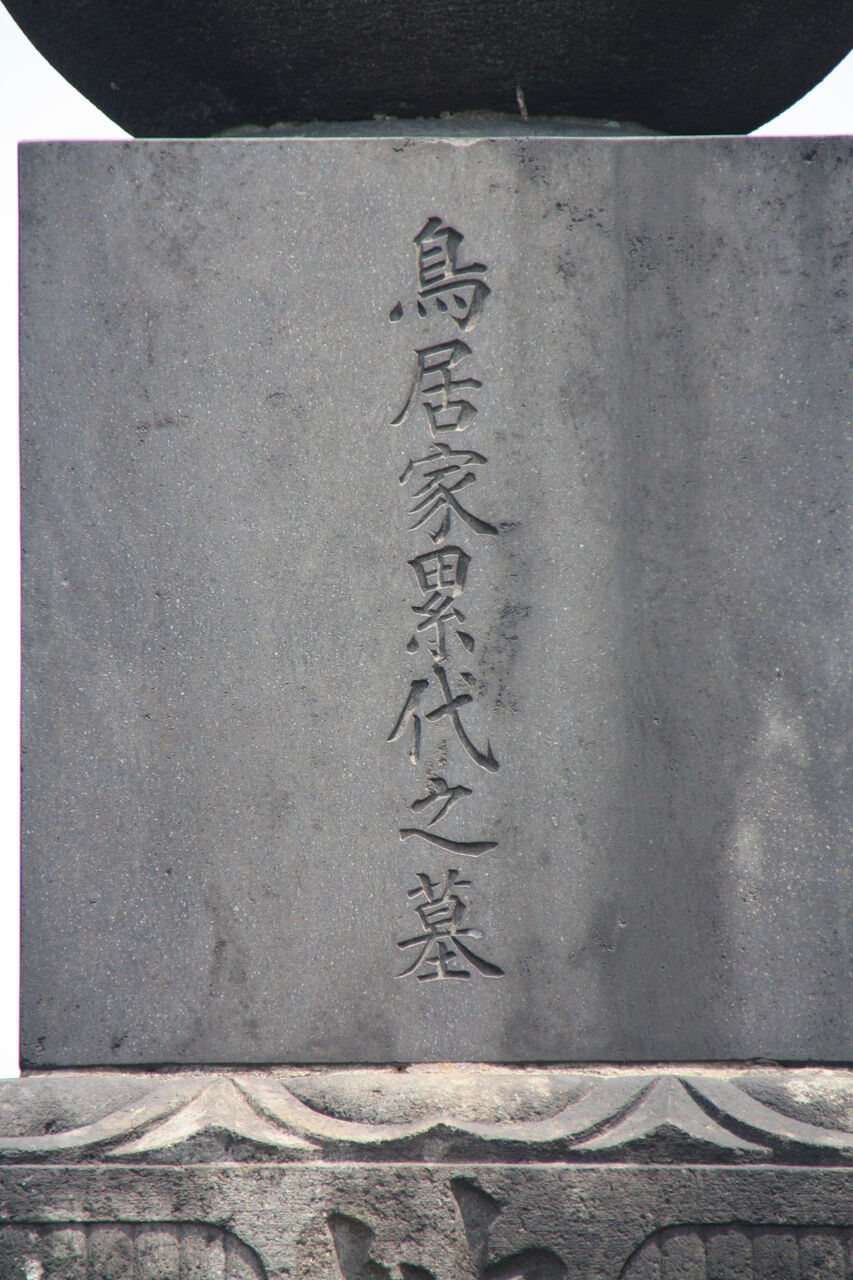 鳥居家累代之墓